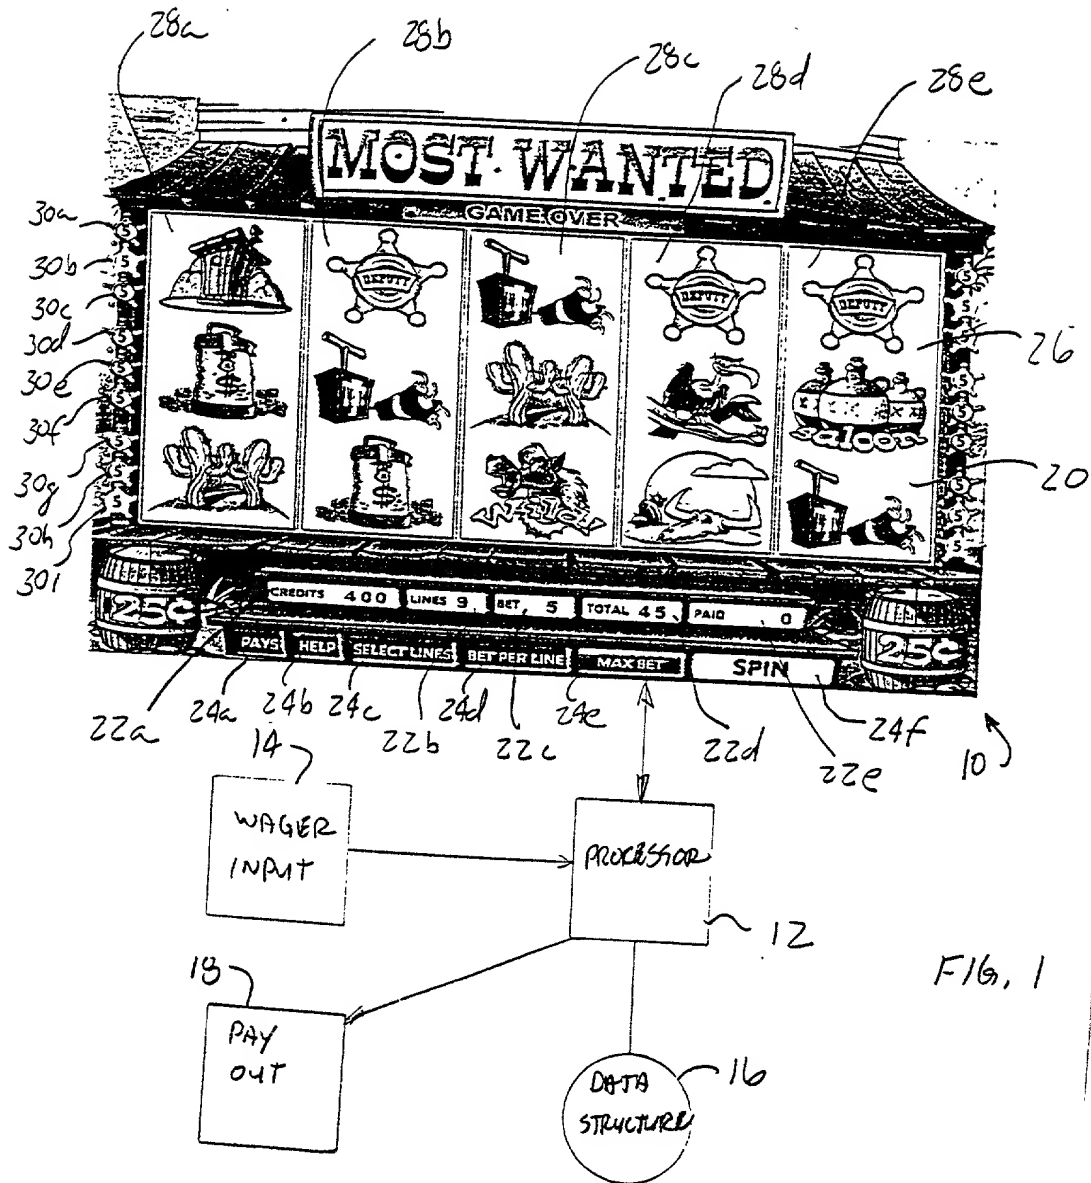 28a
28b
28c
28d
28e
MOST WANTED
GAME OVER
30a
30b
30c
30d
30e
30f
30g
30h
30i
DEPUTY
DEPUTY
DEPUTY
26
saloon
20
CREDITS 400 LINES 9 BET 5 TOTAL 45 PAID 0
25¢
25¢
PAYS HELP SELECT LINES BET PER LINE MAX BET SPIN
22a 24a 24b 24c 22b 24d 22c 24e 22d 22e 24f 10
14
WAGER
INPUT
PROCESSOR
12
18
PAY
OUT
FIG. 1
16
DATA
STRUCTURE